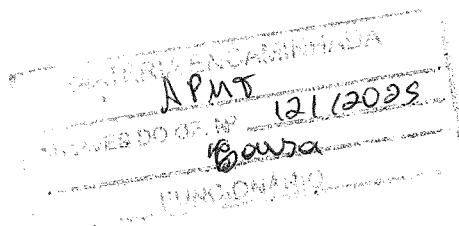 MATERIA ENCAMINHADA
APMT
ATRAVES DO OF. Nº 121/2025
Sousa
FUNCIONARIO